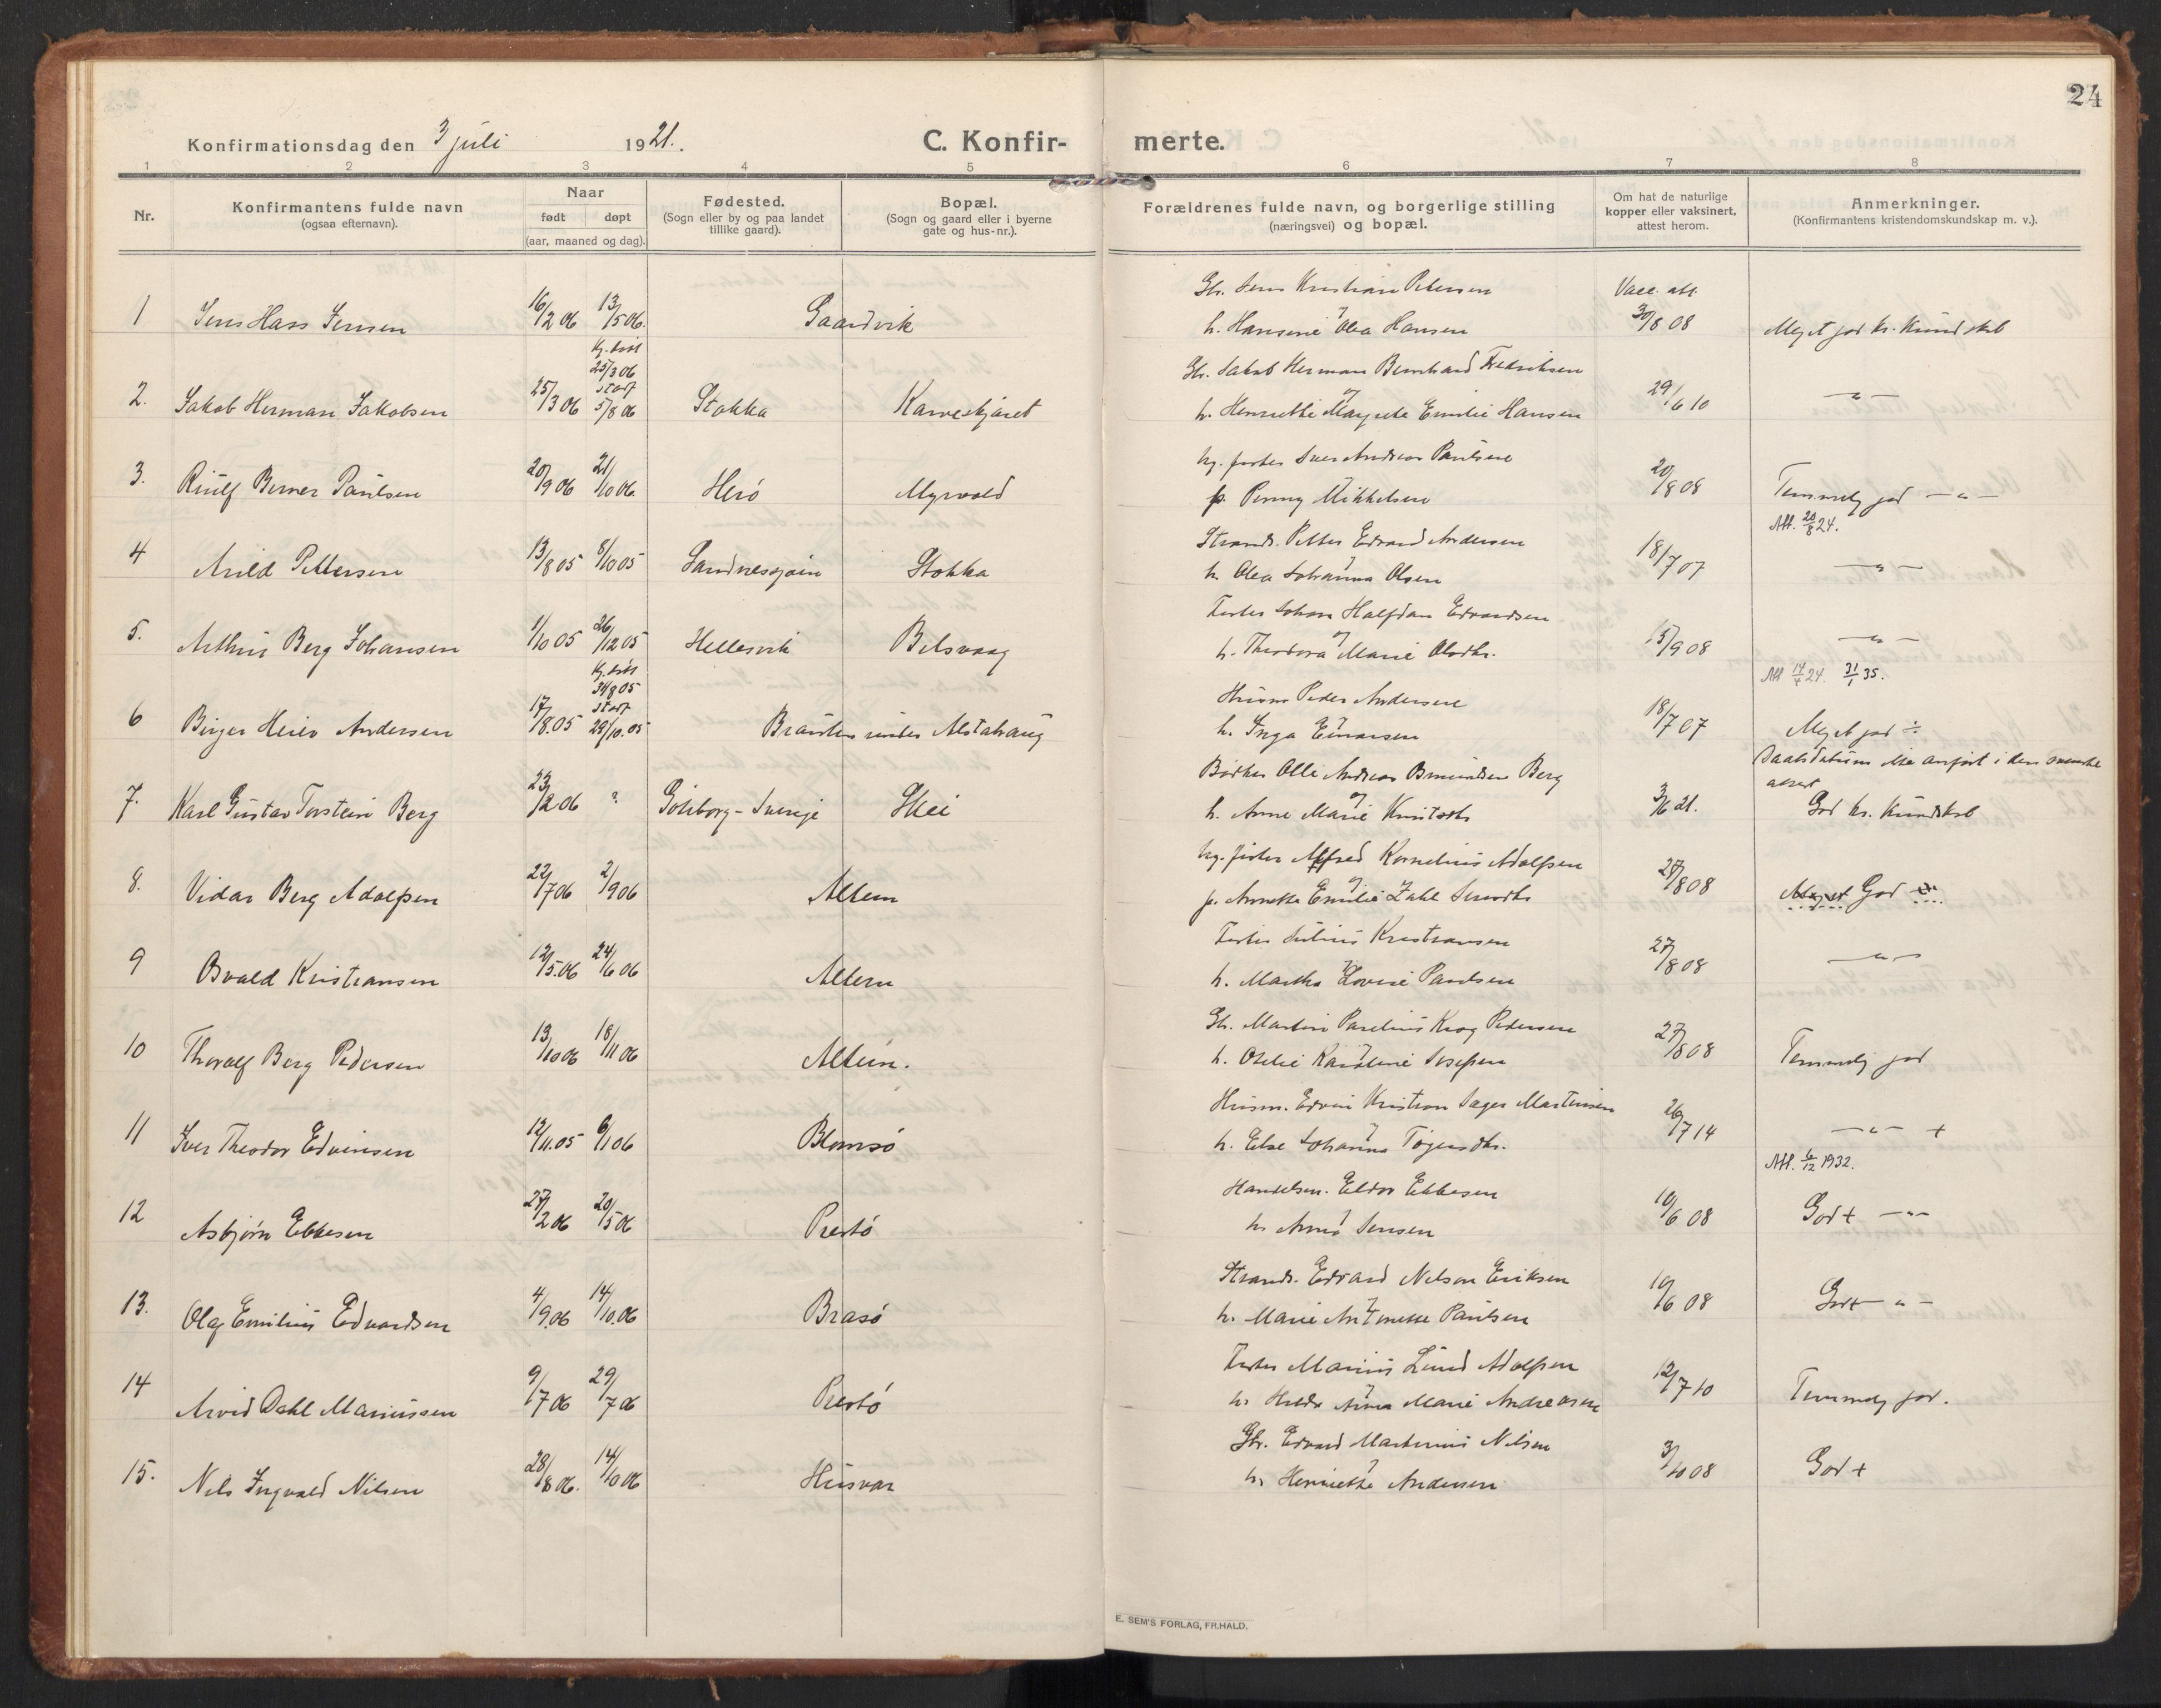 24
Konfirmationsdag den 3 juli 1921.
C. Konfir-
merte.
1 2 3 4 5 6 7 8
Nr.
Konfirmantens fulde navn
(ogsaa efternavn).
Naar
født døpt
(aar, maaned og dag).
Fødested.
(Sogn eller by og paa landet
tillike gaard).
Bopæl.
(Sogn og gaard eller i byerne
gate og hus-nr.).
Forældrenes fulde navn, og borgerlige stilling
(næringsvei) og bopæl.
Om hat de naturlige
kopper eller vaksinert,
attest herom.
Anmerkninger.
(Konfirmantens kristendomskundskap m. v.).
Gbr. Jens Kristian Petersen Vacc. att.
1 Jens Hass Jensen 16/2 06 13/5 06. Gaardvik
og
h. Hansine Olea Hansen 30/8 08 Meget god kr. kundskab
Hj. døbt
25/3 06
Gbr. Jakob Herman Bernhard Fredriksen
2. Jakob Herman Jakobsen 25/3 06 stadf 5/8 06 Stokka
og
h. Henriette Margrete Emilie Hansen 29/6 10 — " —
Ug. fisker Andreas Paulsen
3. Berner Paulsen 20/9 06 21/10 06. Herø Myrvold
p. Penny Mikkelsen 20/8 08 Temmelig god — " —
Att. 20/8 24.
Strands. Petter Edvard Andersen
4 Arild Pettersen 13/8 05 8/10 05 Sandnessjøen Stokka
og
h. Olea Johanna Olsen 18/7 07 — " —
Fisker Johan Halfdan Edvardsen
5. Arthur Berg Johansen 1/10 05 26/12 05 Hellesvik Belsvaag
og
h. Theodora Marie Olsdtr. 15/9 08 — " —
Att 14/4 24. 31/1 35.
Hj. døbt
31/8 05
Husm Peder Andersen
6 Birger Heier Andersen 17/8.05 stadf 29/10.05 under Alstahaug
og
h. Inga Einarsen 18/7 07 Meget god ÷
Daabsdatum ikke anført i den svenske
attest
Bødker Olle Andreas Berg
7. Karl Gustav Torstein Berg 23/2 06 ? Göteborg - Sverige Skei
og
h. Anne Marie Knutsdtr 3/6 21. God kr. kundskab
Ug. fisker Alfred Kornelius Adolfsen
8. Vidar Berg Adolfsen 22/7 06 2/9 06 Altern
og
p. Annette Emilie Zahl 27/8 08 Meget God
Fisker Julius Kristiansen
9 Osvald Kristiansen 12/5.06 24/6 06 Altern
og
h. Martha Lovise Paulsen 27/8 08 — " —
Gb. Martin Parelius Krog Pedersen
10 Thoralf Berg Pedersen 13/10 06 18/11 06 Altern.
og
h. Otelie Karoline Josefsen 27/8 08 Temmelig god
Husm. Edvin Kristian Jager Martinsen
11 Iver Theodor Edvinsen 12/11.05 6/1 06 Blomsø
og
h. Else Johanna Tøgersdtr. 26/7 14 — " — +
Att. 6/12 1932.
Handelsm. Eldor Ebbesen
12 Asbjørn Ebbesen 27/2 06 20/5 06 Prestø
og
h. Anna Jensen 10/6 08 God + — " —
Strands. Edvard Nelson Eriksen
13. Olaf Emilius Edvardsen 4/9.06 14/10.06 Brasø
og
h. Marie Antonette Paulsen 10/6 08 God + — " —
Fisker Marius Lund Adolfsen
14 Arvid Dahl Mariussen 9/7 06 29/7 06 Prestø
og
h. Hilda Anna Marie Andreasen 12/7 10 Temmelig god.
Gbr. Edvard Martinius Nilsen
15. Nils Ingvald Nilsen 28/8 06. 14/10 06 Husvær
og
h. Henriette Andersen 3/10 08 God +
E. SEM'S FORLAG, FR.HALD.